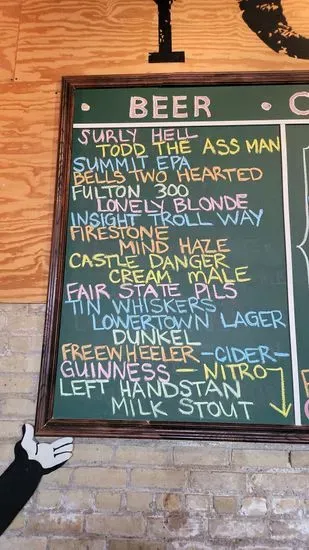 BEER
SURLY HELL
TODD THE ASS MAN
SUMMIT EPA
BELLS TWO HEARTED
FULTON 300
LONELY BLONDE
INSIGHT TROLL WAY
FIRESTONE
MIND HAZE
CASTLE DANGER
CREAM MALE
FAIR STATE PILS
TIN WHISKERS
LOWERTOWN LAGER
DUNKEL
FREEWHEELER -CIDER-
GUINNESS - NITRO
LEFT HANDSTAN
MILK STOUT